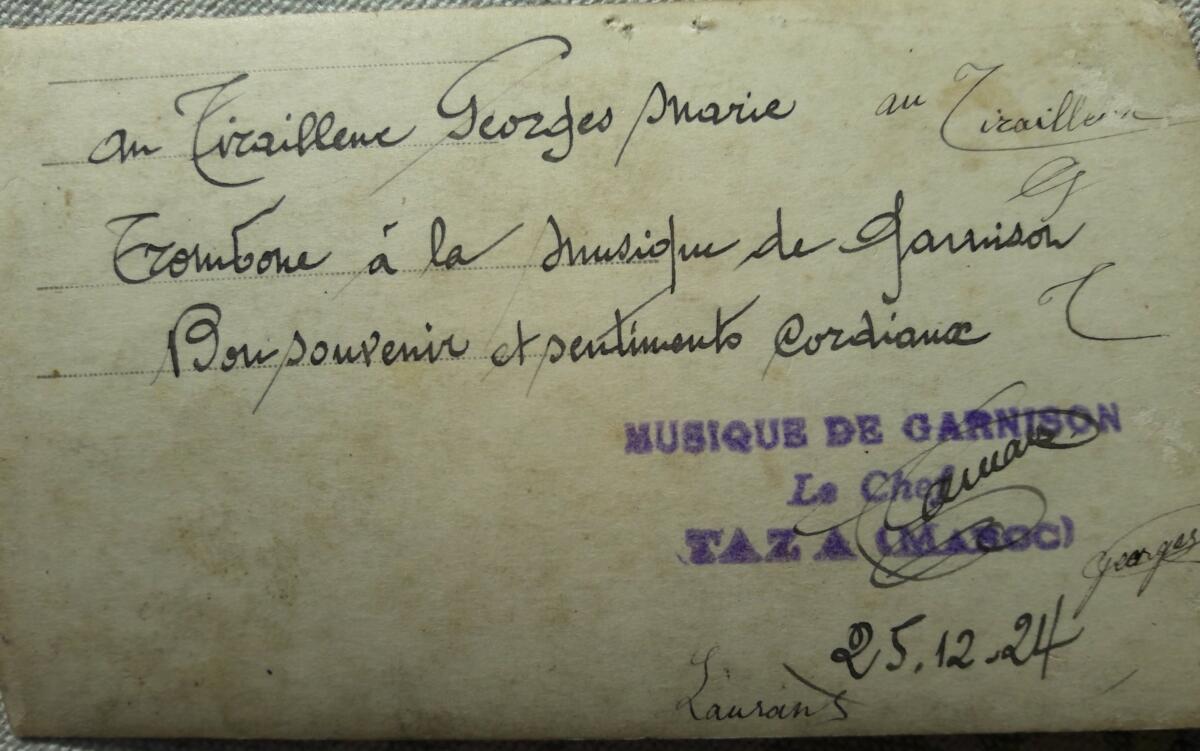 au Tirailleur Georges Marie au Tirailleur
G
Trombone à la Musique de Garnison
Bon souvenir et sentiments cordiaux T
MUSIQUE DE GARNISON
Le Chef
TAZA (MAROC)
Georges
25.12.24
Laurans